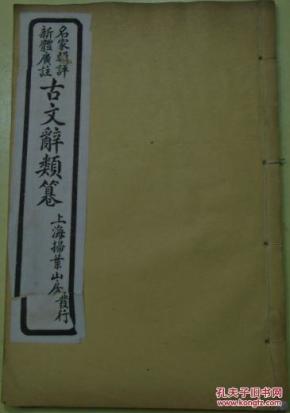 名家評註
新體廣註
古文辭類篹
上海掃葉山房發行
孔夫子旧书网